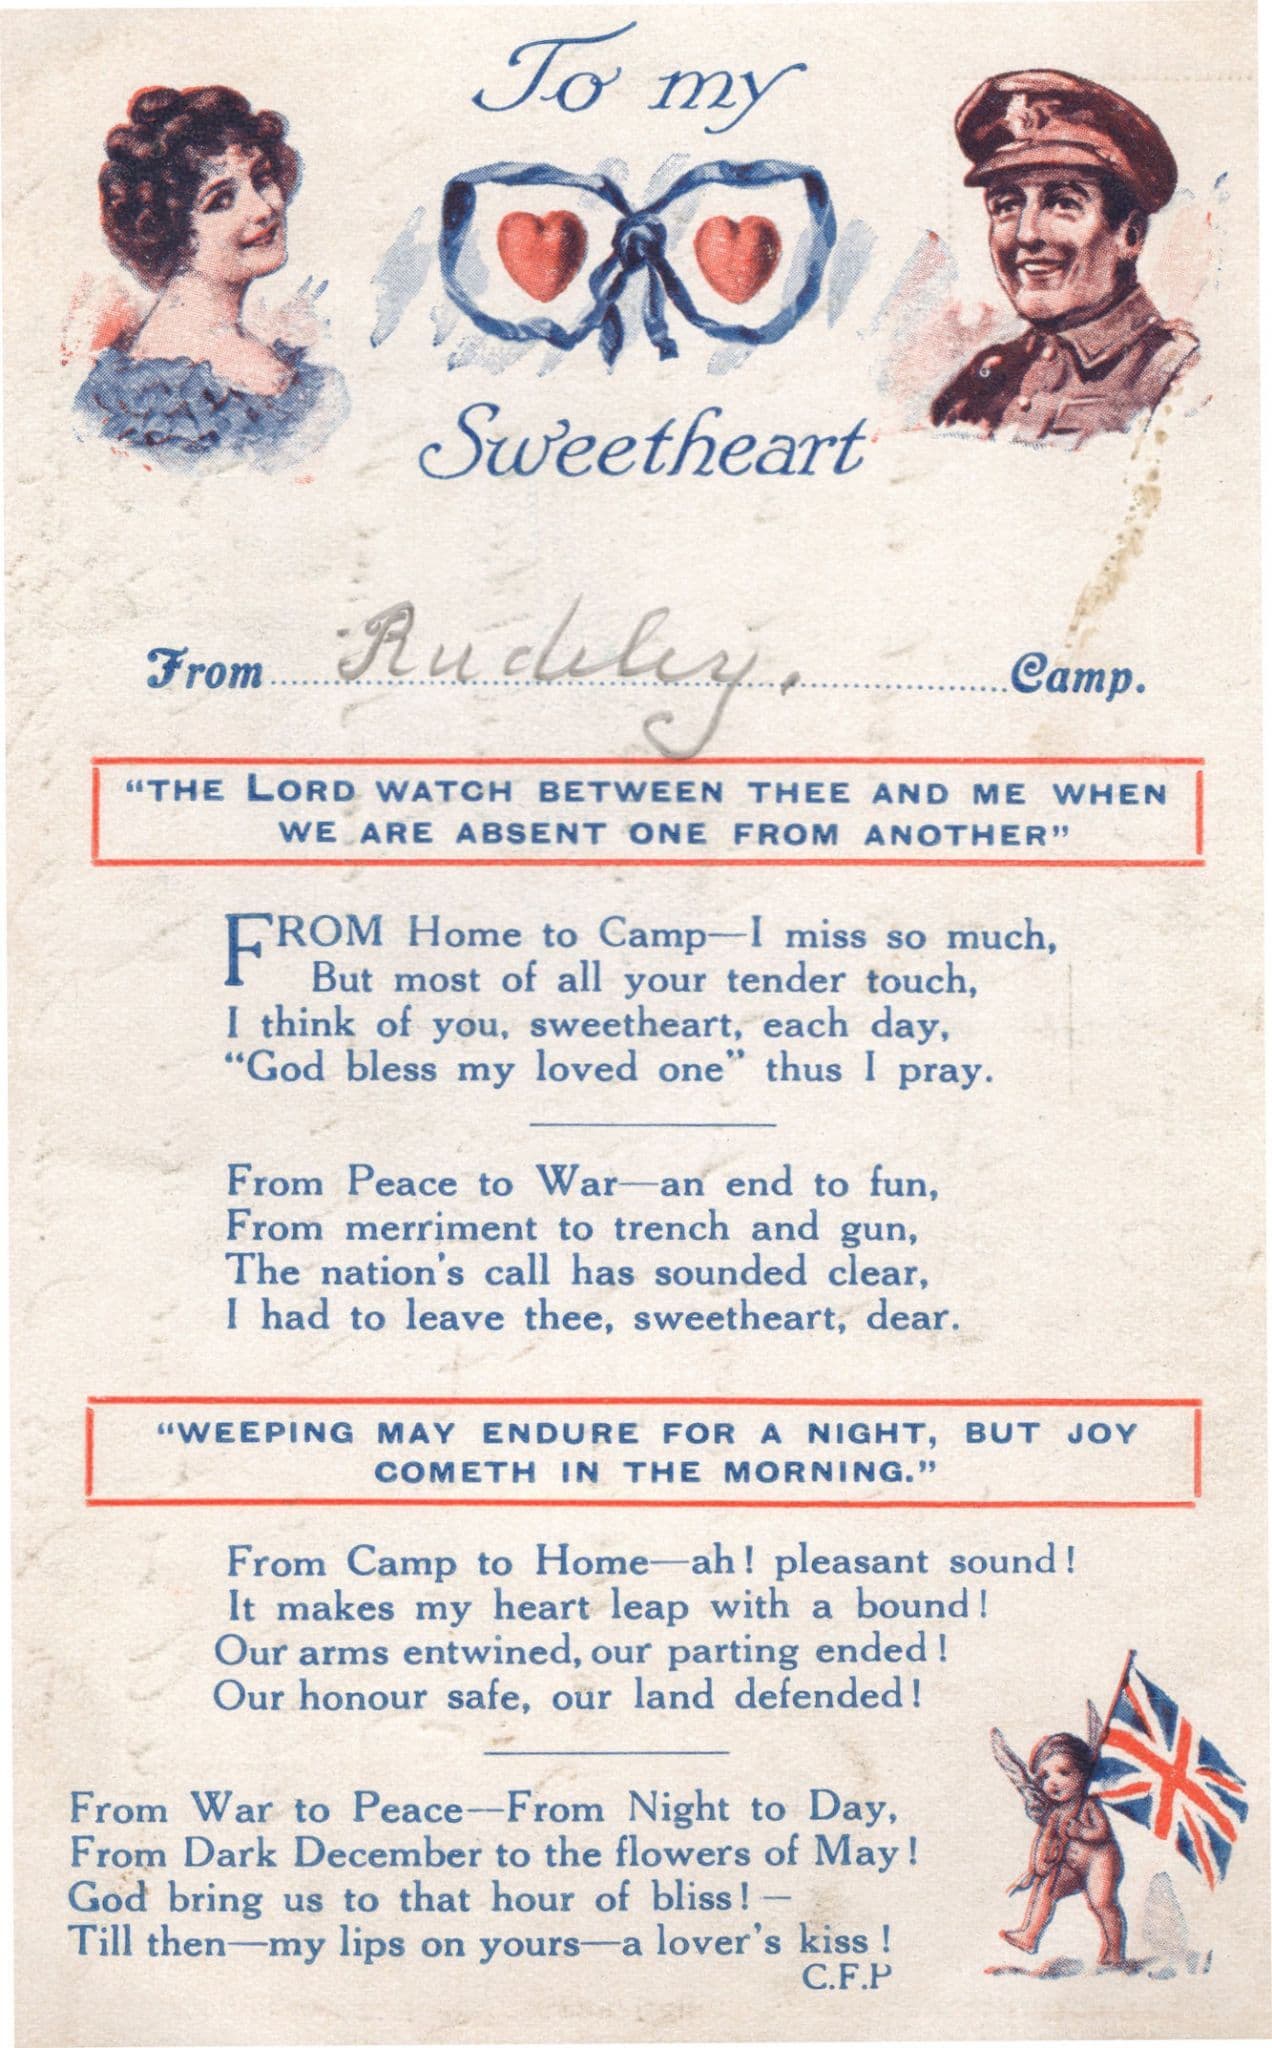 To my
Sweetheart
From Rudeley. Camp.
“THE LORD WATCH BETWEEN THEE AND ME WHEN
WE ARE ABSENT ONE FROM ANOTHER”
FROM Home to Camp—I miss so much,
But most of all your tender touch,
I think of you, sweetheart, each day,
“God bless my loved one” thus I pray.
From Peace to War—an end to fun,
From merriment to trench and gun,
The nation's call has sounded clear,
I had to leave thee, sweetheart, dear.
“WEEPING MAY ENDURE FOR A NIGHT, BUT JOY
COMETH IN THE MORNING.”
From Camp to Home—ah! pleasant sound!
It makes my heart leap with a bound!
Our arms entwined, our parting ended!
Our honour safe, our land defended!
From War to Peace—From Night to Day,
From Dark December to the flowers of May!
God bring us to that hour of bliss! —
Till then—my lips on yours—a lover's kiss!
C.F.P